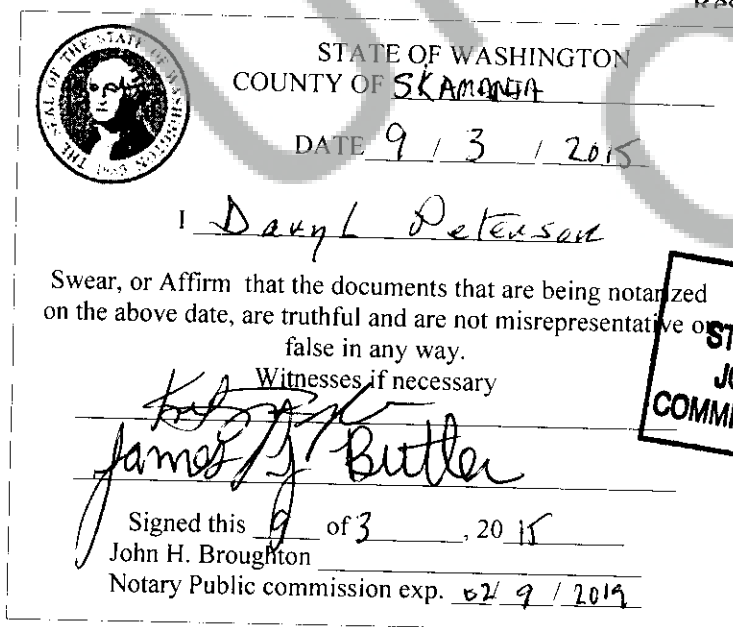 THE SEAL OF THE STATE OF WASHINGTON
STATE OF WASHINGTON
COUNTY OF SKAMANIA
DATE 9 / 3 / 2015
I Daryl Peterson
Swear, or Affirm that the documents that are being notarized
on the above date, are truthful and are not misrepresentative or
false in any way.
Witnesses if necessary
James J Butler
Signed this 9 of 3, 2015
John H. Broughton
Notary Public commission exp. 02/ 9 / 2019
ST
JO
COMMI